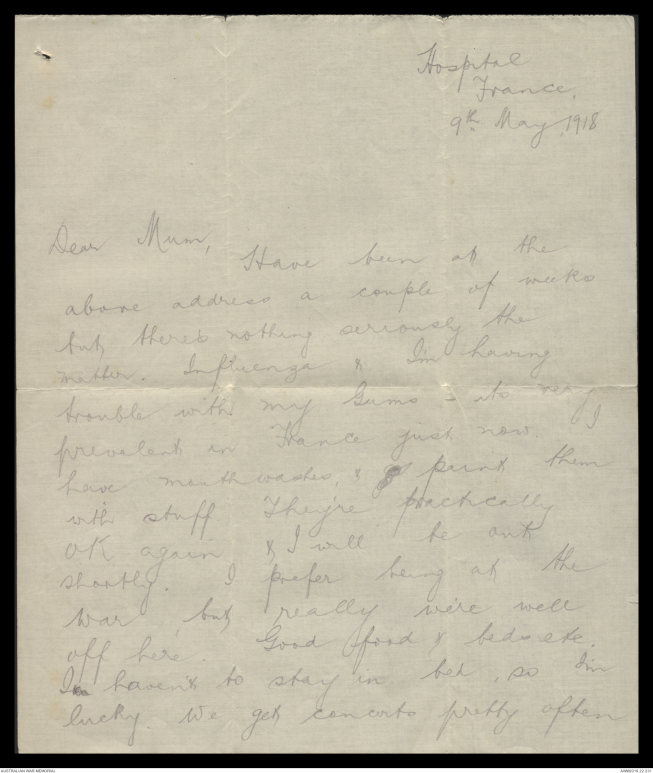 Hospital
France.
9th May, 1918
Dear Mum,
Have been at the
above address a couple of weeks
but there's nothing seriously the
matter. Influenza & I'm having
trouble with my Gums - its very
prevalent in France just now. I
have mouthwashes, & paint them
with stuff. They're practically
OK again & I will be out
shortly. I prefer being at the
War, but really we're well
off here. Good food & beds etc.
I haven't to stay in bed, so I'm
lucky. We get concerts pretty often
AUSTRALIAN WAR MEMORIAL